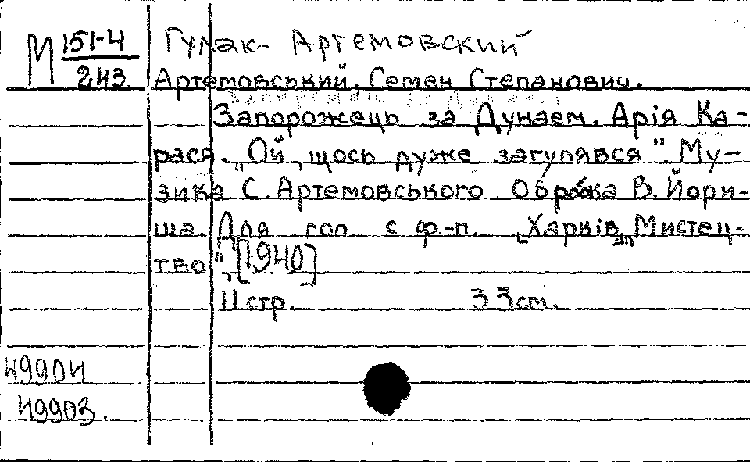 М 151-4
243
Гулак- Артемовский
Артемовський, Семен Степанович.
Запорожець за Дунаем. Арія Ка-
рася. "Ой, щось дуже загулявся". Му-
зика С. Артемовського Обробка В. Йори-
ша. Для гол с ф.-п. "Харків, Мистец-
тво", [1940]
11 стр. 33 ст.
49904
49903.